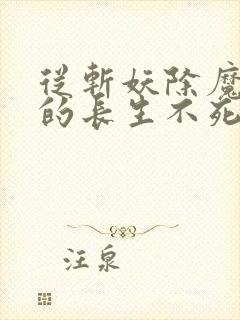 從斬妖除魔
的長生不死
汪泉